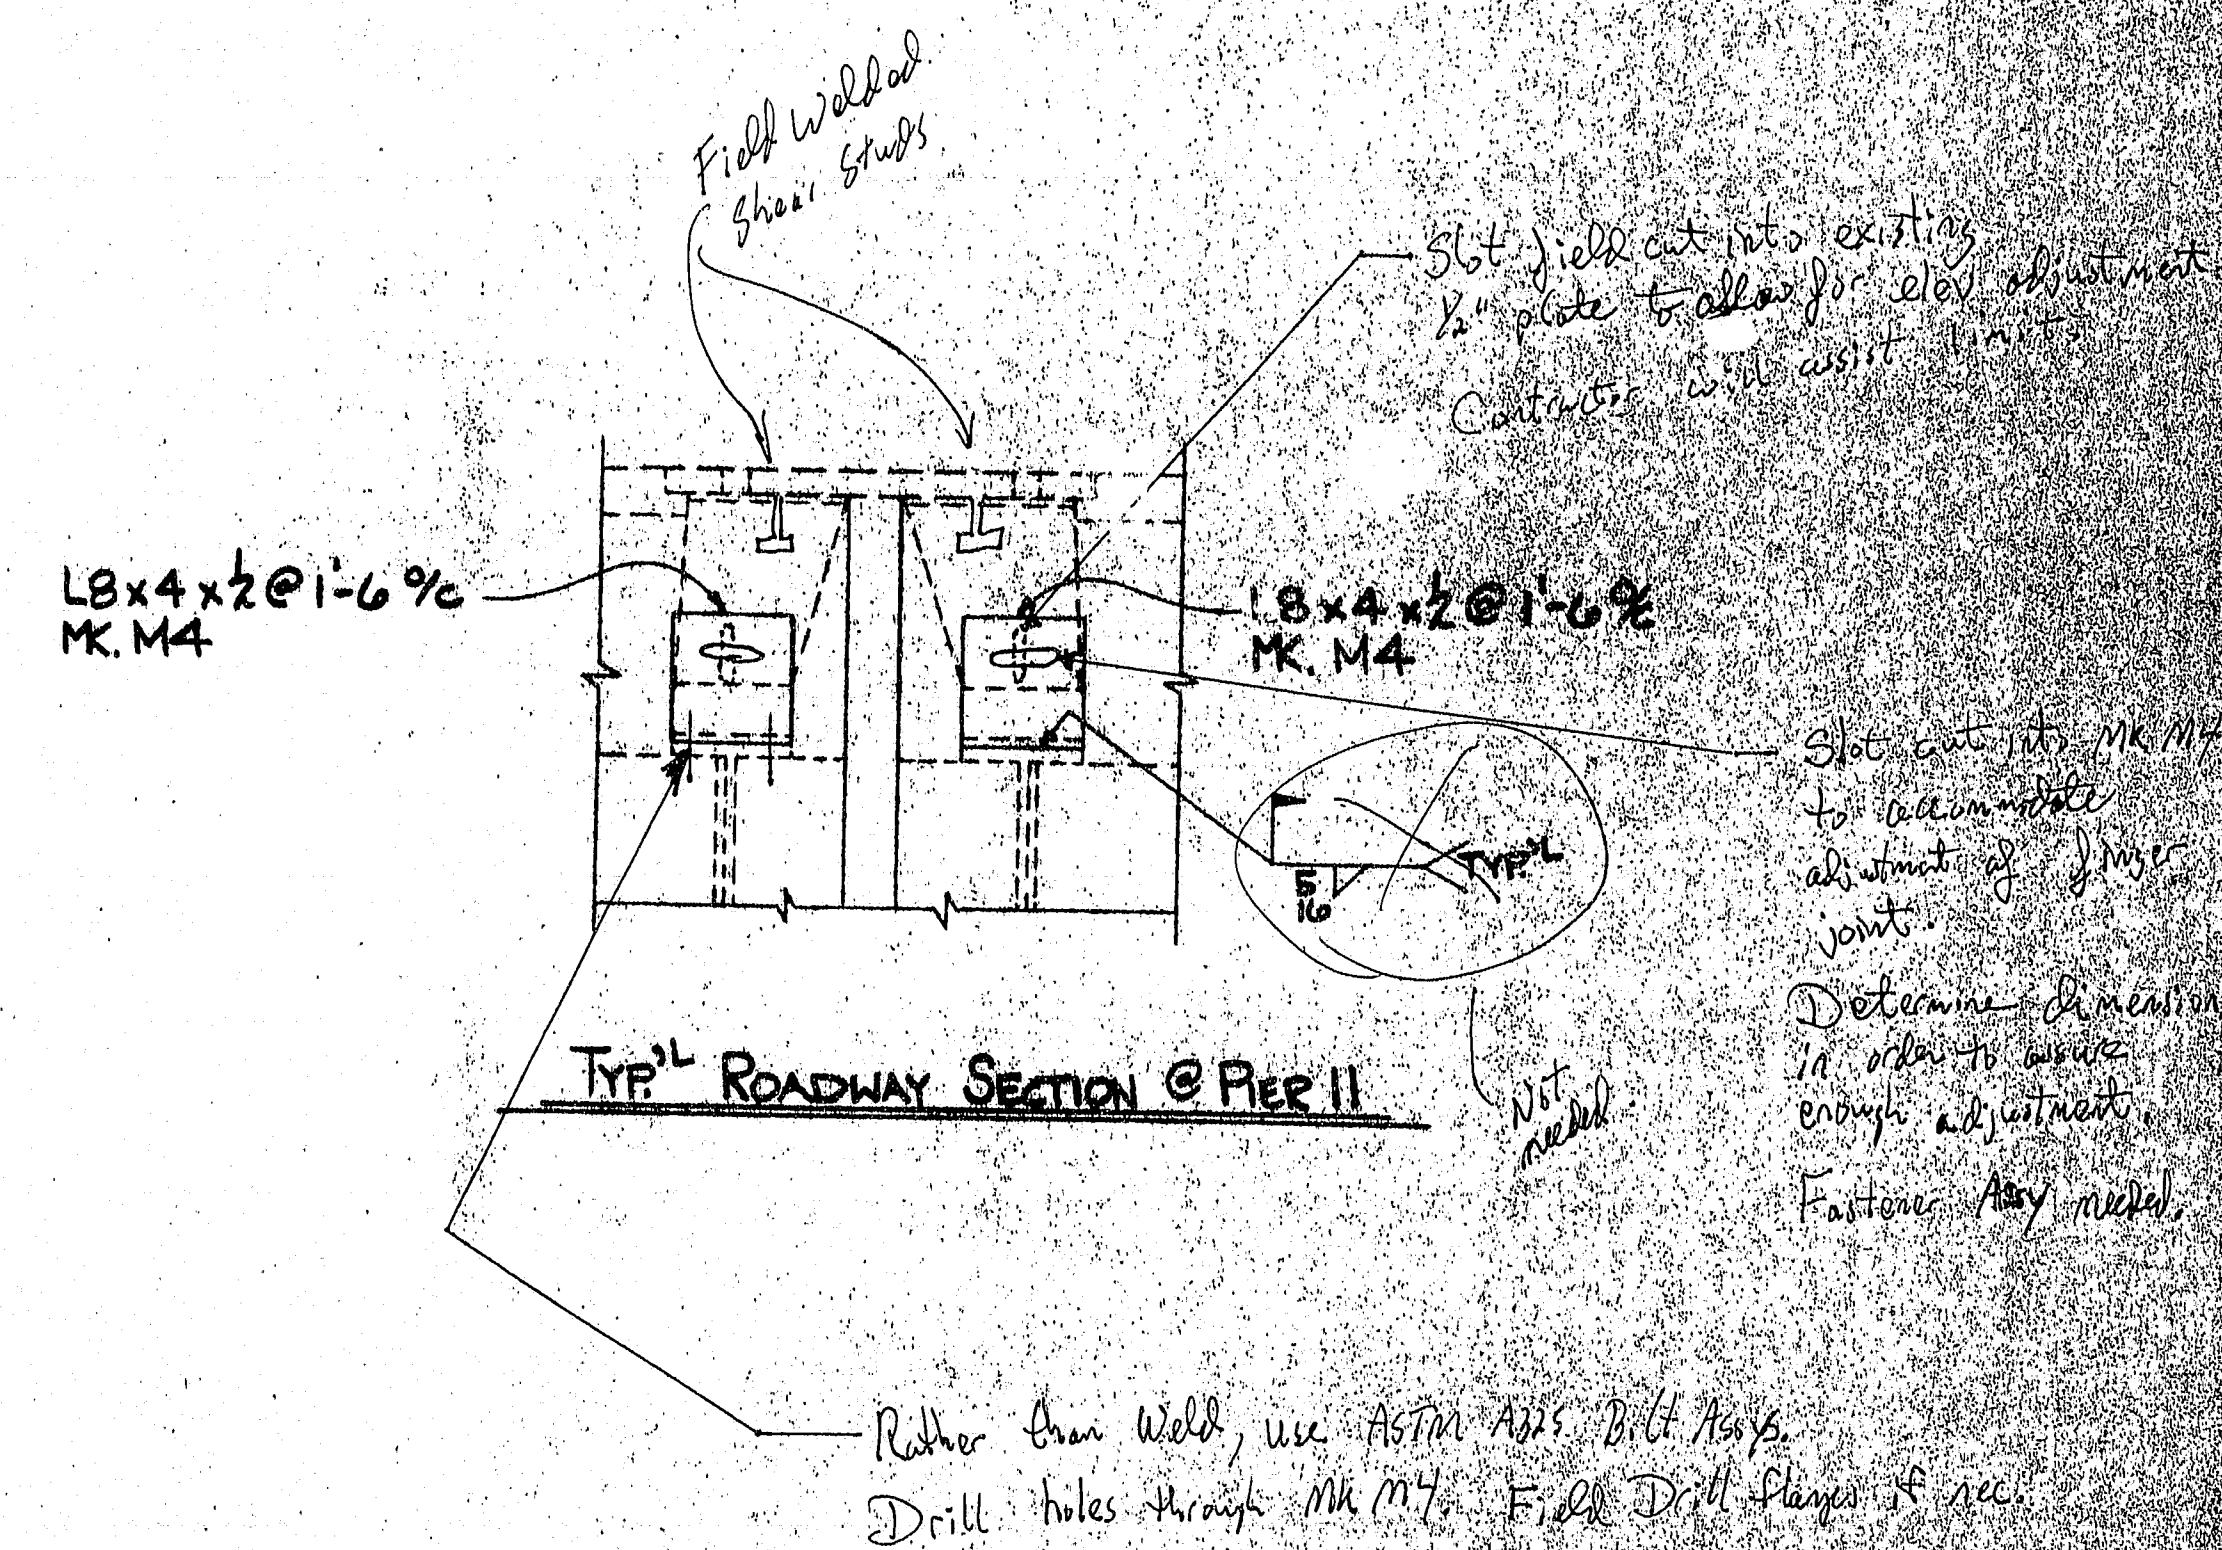 Field Welded.
Shear Studs
Slot field cut into existing
1/2" plate to allow for elev adjustment.
Contractor will assist limits
L8x4x1/2 @ 1'-6 o/c
MK. M4
L8x4x1/2 @ 1'-6 o/c
MK. M4
Slot cut into MK M4
to accommodate
adjustment of finger
joint.
TYP.'L
5
16
Determine dimension
in order to assure
enough adjustment.
Fastener Assy needed.
Not
needed.
TYP.'L ROADWAY SECTION @ PIER 11
Rather than Weld, use ASTM A325 Bolt Assys.
Drill holes through MK M4. Field Drill flanges if nec.